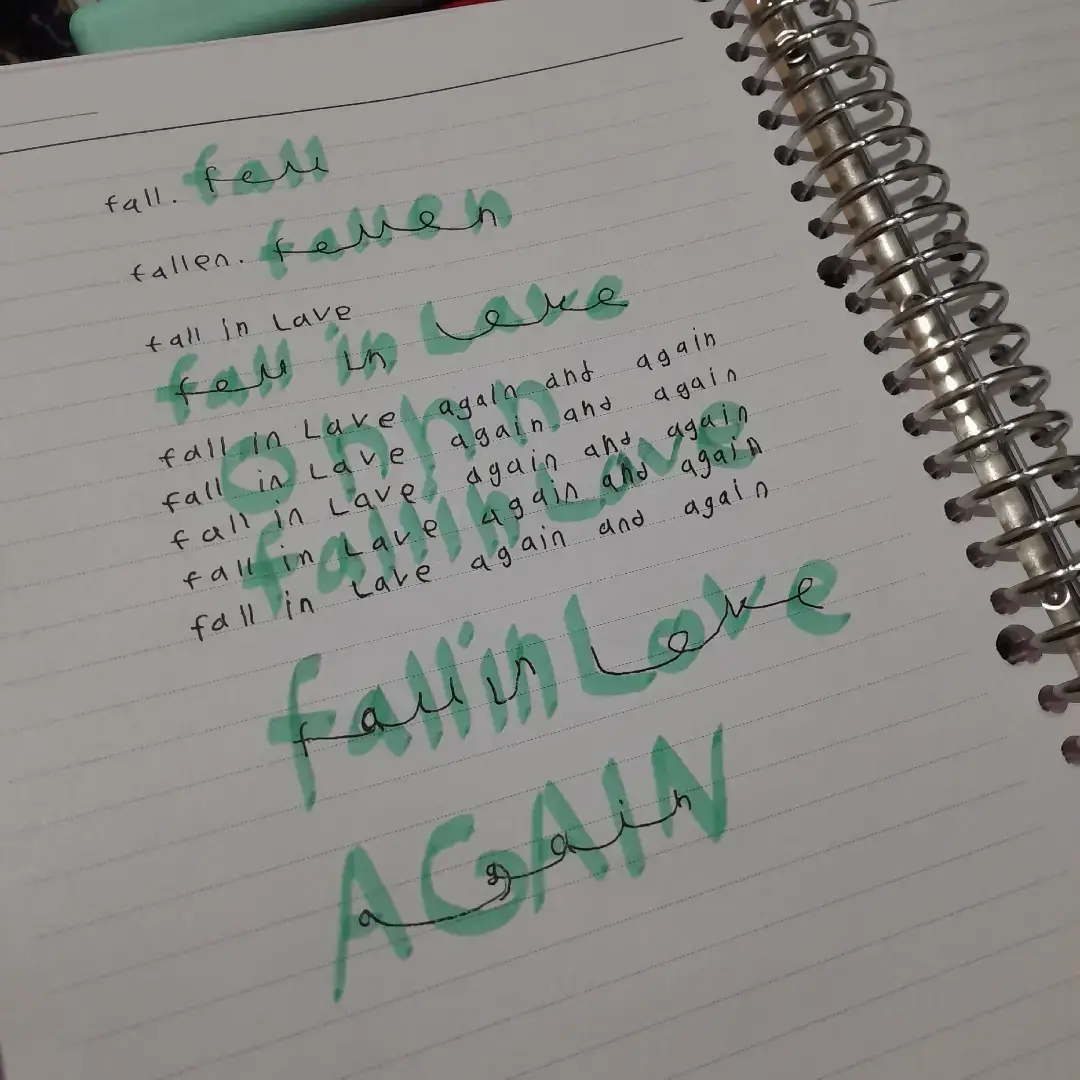 fall. fall
fallen. fallen
fall in Lave
fall in Love
fall in Lave again and again
fall in Lave again and again
fall in Lave again and again
fall in Lave again and again
fall in Lave again and again
fall in Love
fall in Love
AGAIN
again